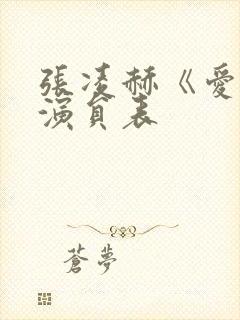 張凌赫《愛
演員表
蒼夢